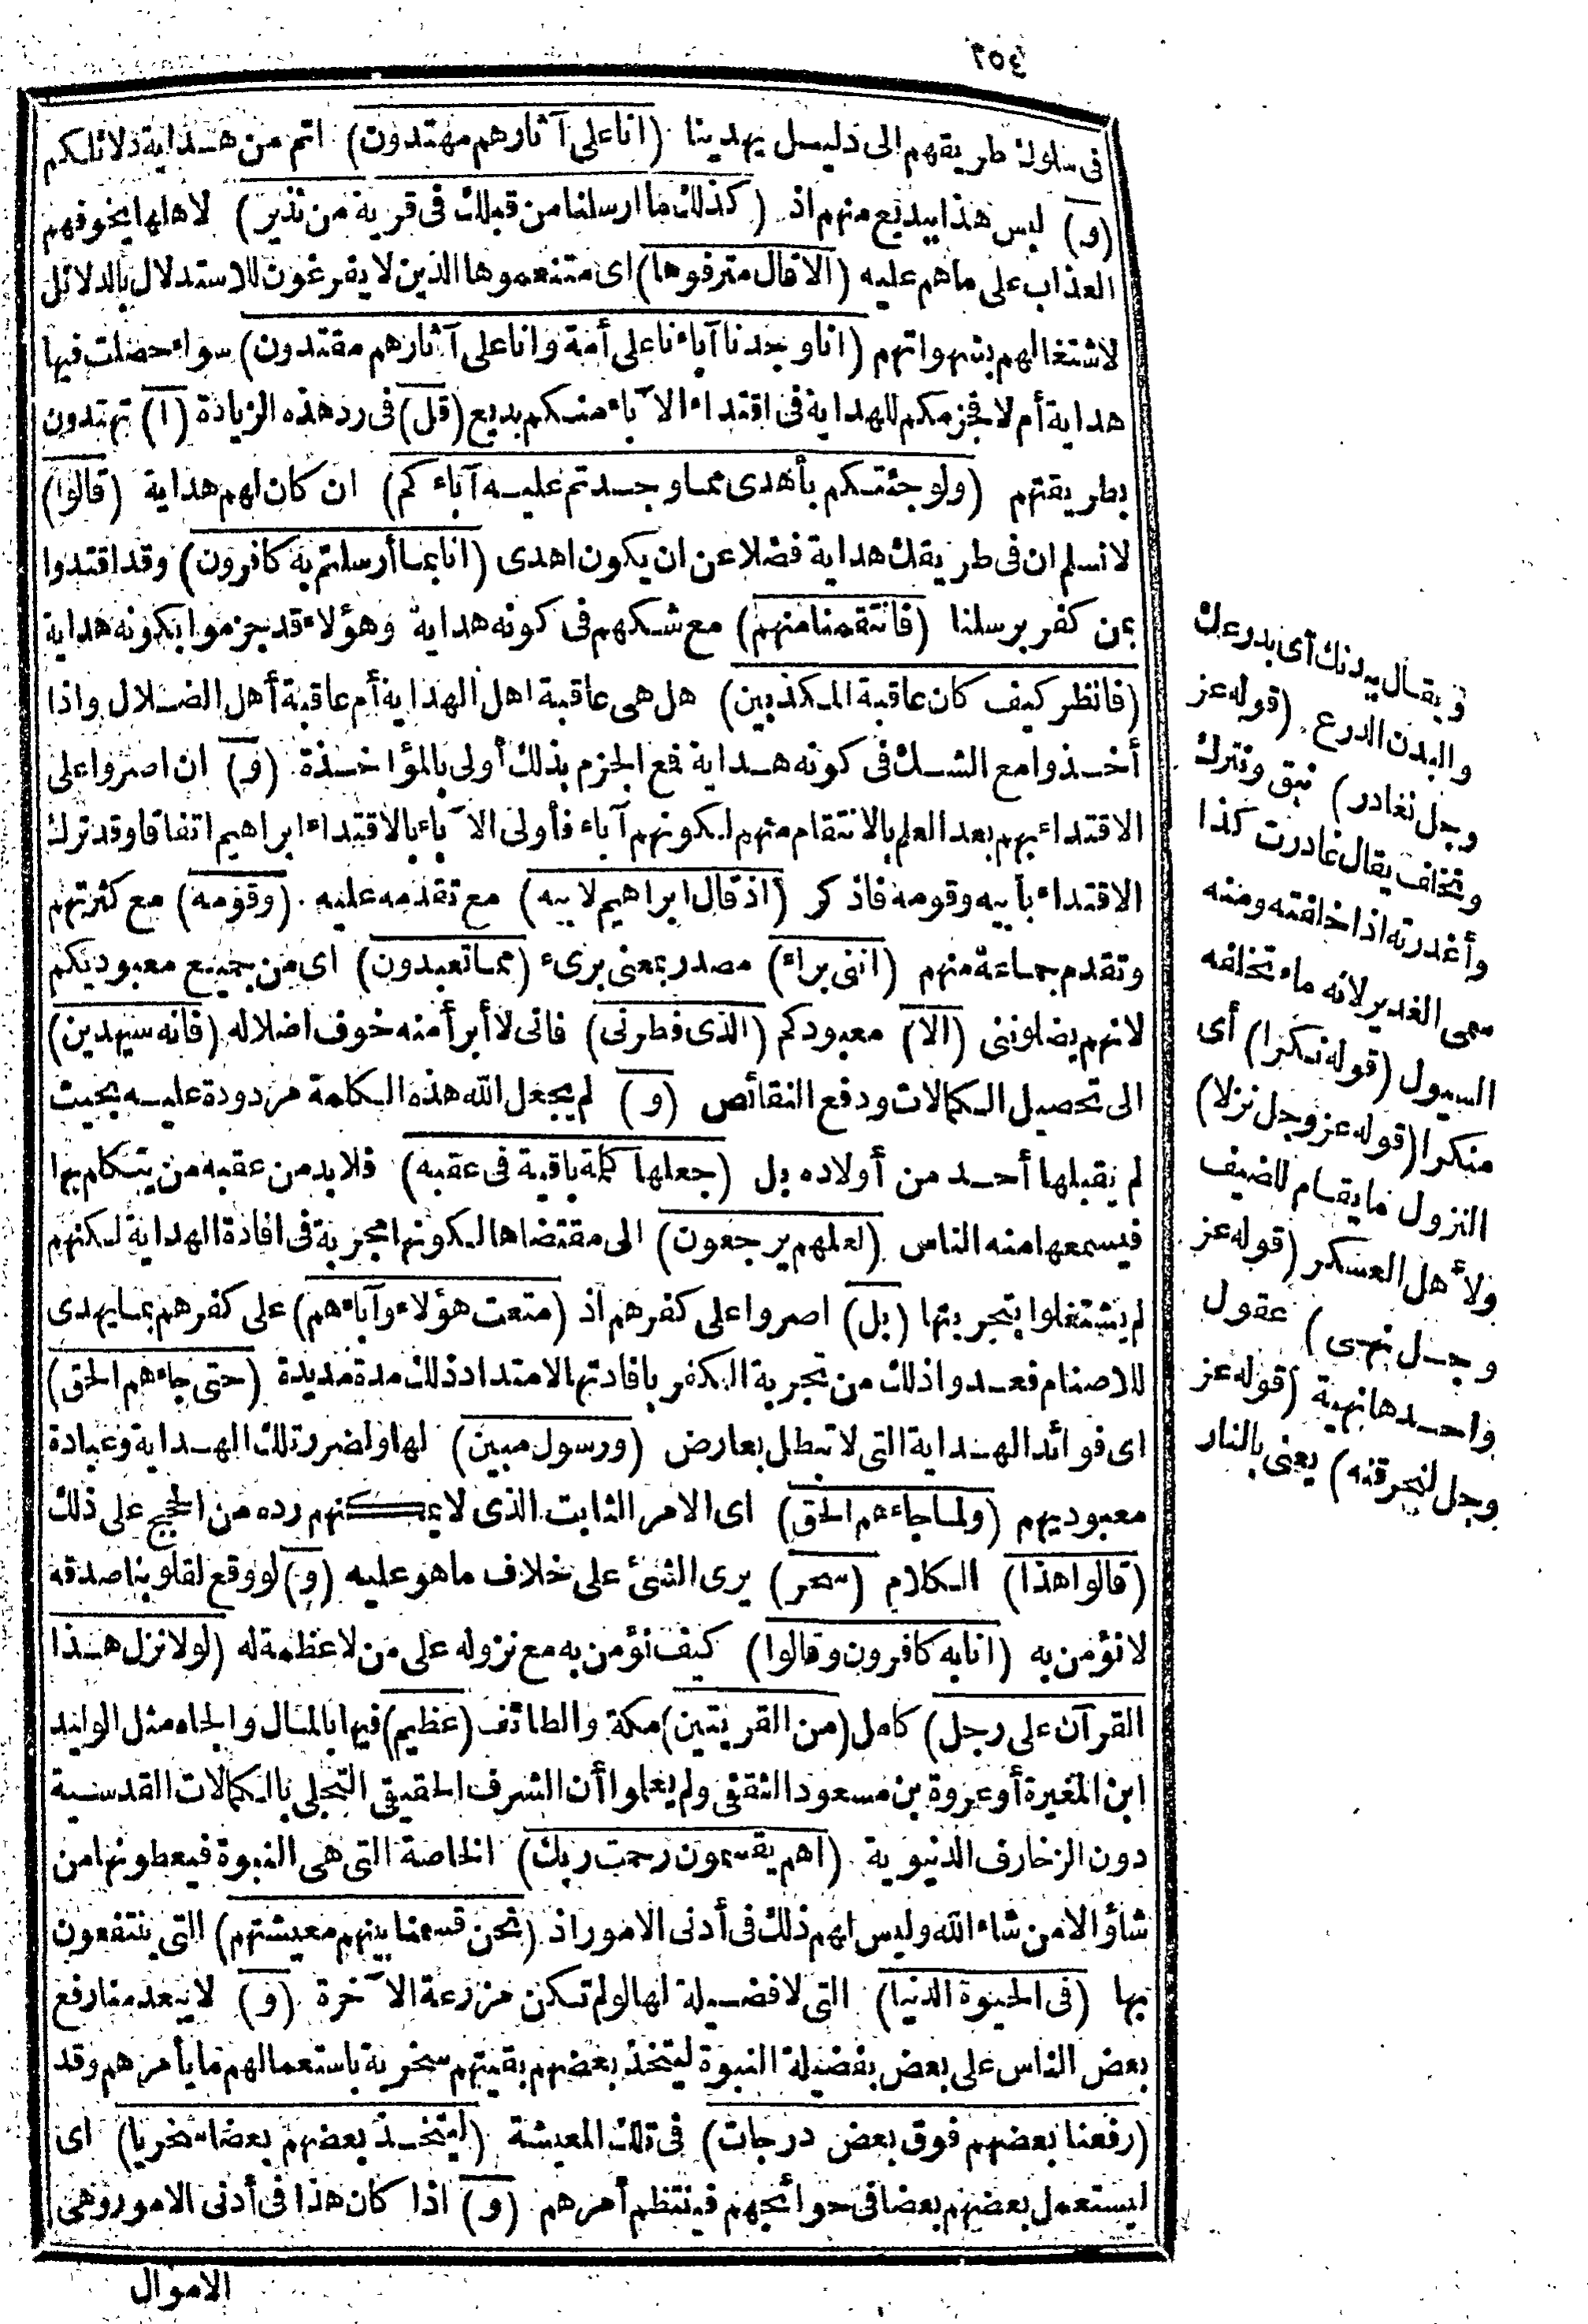 فى سلوك طريقهم الى دليل يهدينا (انا على آثارهم مهتدون) اتم من هداية دلائلكم
(و) ليس هذا ببديع منهم اذ (كذلك ما ارسلنا من قبلك فى قرية من نذير) لاهلها يخوفهم
العذاب على ما هم عليه (الا قال مترفوها) اى متنعموها الذين لا يفرغون للاستدلال بالدلائل
لاشتغالهم بشهواتهم (انا وجدنا آباءنا على أمة وانا على آثارهم مقتدون) سواء حصلت فيها
هداية أم لا فجزمكم للهداية فى اقتداء الآباء منكم بديع (قل) فى رد هذه الزيادة (ا) تهتدون
بطريقتهم (ولو جئتكم بأهدى مما وجدتم عليه آباءكم) ان كان لهم هداية (قالوا)
لا نسلم ان فى طريقك هداية فضلا عن ان يكون اهدى (انا بما أرسلتم به كافرون) وقد اقتدوا
بمن كفر برسلنا (فانتقمنا منهم) مع شكهم فى كونه هداية وهؤلاء قد جزموا بكونه هداية
(فانظر كيف كان عاقبة المكذبين) هل هى عاقبة اهل الهداية أم عاقبة أهل الضلال واذا
أخذوا مع الشك فى كونه هداية فمع الجزم بذلك أولى بالمؤاخذة (و) ان اصروا على
الاقتداء بهم بعد العلم بالانتقام منهم لكونهم آباء فأولى الآباء بالاقتداء ابراهيم اتفاقا وقد ترك
الاقتداء بأبيه وقومه فاذكر (اذ قال ابراهيم لابيه) مع تقدمه عليه (وقومه) مع كثرتهم
وتقدم جماعة منهم (اننى براء) مصدر بمعنى برىء (مما تعبدون) اى من جميع معبوديكم
لانهم يضلوننى (الا) معبودكم (الذى فطرنى) فانى لا أبرأ منه خوف اضلاله (فانه سيهدين)
الى تحصيل الكمالات ودفع النقائص (و) لم يجعل الله هذه الكلمة مردودة عليه بحيث
لم يقبلها أحد من أولاده بل (جعلها كلمة باقية فى عقبه) فلا بد من عقبه من يتكلم بها
فيسمعها منه الناس (لعلهم يرجعون) الى مقتضاها لكونها مجربة فى افادة الهداية لكنهم
لم يشتغلوا بتجربتها (بل) اصروا على كفرهم اذ (متعت هؤلاء وآباءهم) على كفرهم بما يهدى
للاصنام فعدوا ذلك من تجربة الكفر بافادتها لامتداد ذلك مدة مديدة (حتى جاءهم الحق)
اى فوائد الهداية التى لا تبطل بعارض (ورسول مبين) لها ولضرر تلك الهداية وعبادة
معبوديهم (ولما جاءهم الحق) اى الامر الثابت الذى لا يمكنهم رده من الحجج على ذلك
(قالوا هذا) الكلام (سحر) يرى الشئ على خلاف ما هو عليه (و) لو وقع لقلوبنا صدقه
لا نؤمن به (انا به كافرون وقالوا) كيف نؤمن به مع نزوله على من لا عظمة له (لولا نزل هذا
القرآن على رجل) كامل (من القريتين) مكة والطائف (عظيم) فيها بالمال والجاه مثل الوليد
ابن المغيرة أو عروة بن مسعود الثقفى ولم يعلموا أن الشرف الحقيقى التجلى بالكمالات القدسية
دون الزخارف الدنيوية (اهم يقسمون رحمت ربك) الخاصة التى هى النبوة فيعطونها من
شاؤا لا من شاء الله وليس لهم ذلك فى أدنى الامور اذ (نحن قسمنا بينهم معيشتهم) التى ينتفعون
بها (فى الحيوة الدنيا) التى لا فضيلة لها لو لم تكن مزرعة الآخرة (و) لا يبعد منا رفع
بعض الناس على بعض بفضيلة النبوة ليتخذ بعضهم بقيتهم سخرية باستعمالهم ما يأمرهم وقد
(رفعنا بعضهم فوق بعض درجات) فى تلك المعيشة (ليتخذ بعضهم بعضا سخريا) اى
ليستعمل بعضهم بعضا فى حوائجهم فينتظم أمرهم (و) اذا كان هذا فى أدنى الامور وهى
الاموال
ويقال ببدنك أى بدرعك
والبدن الدرع (قوله عز
وجل نغادر) نبق ونترك
ونخلف يقال غادرت كذا
وأغدرته اذا خلفته ومنه
سمى الغدير لانه ماء تخلفه
السيول (قوله نكرا) أى
منكرا (قوله عز وجل نزلا)
النزول ما يقام للضيف
ولأهل العسكر (قوله عز
وجل نهى) عقول
واحدها نهية (قوله عز
وجل لنحرقنه) يعنى بالنار